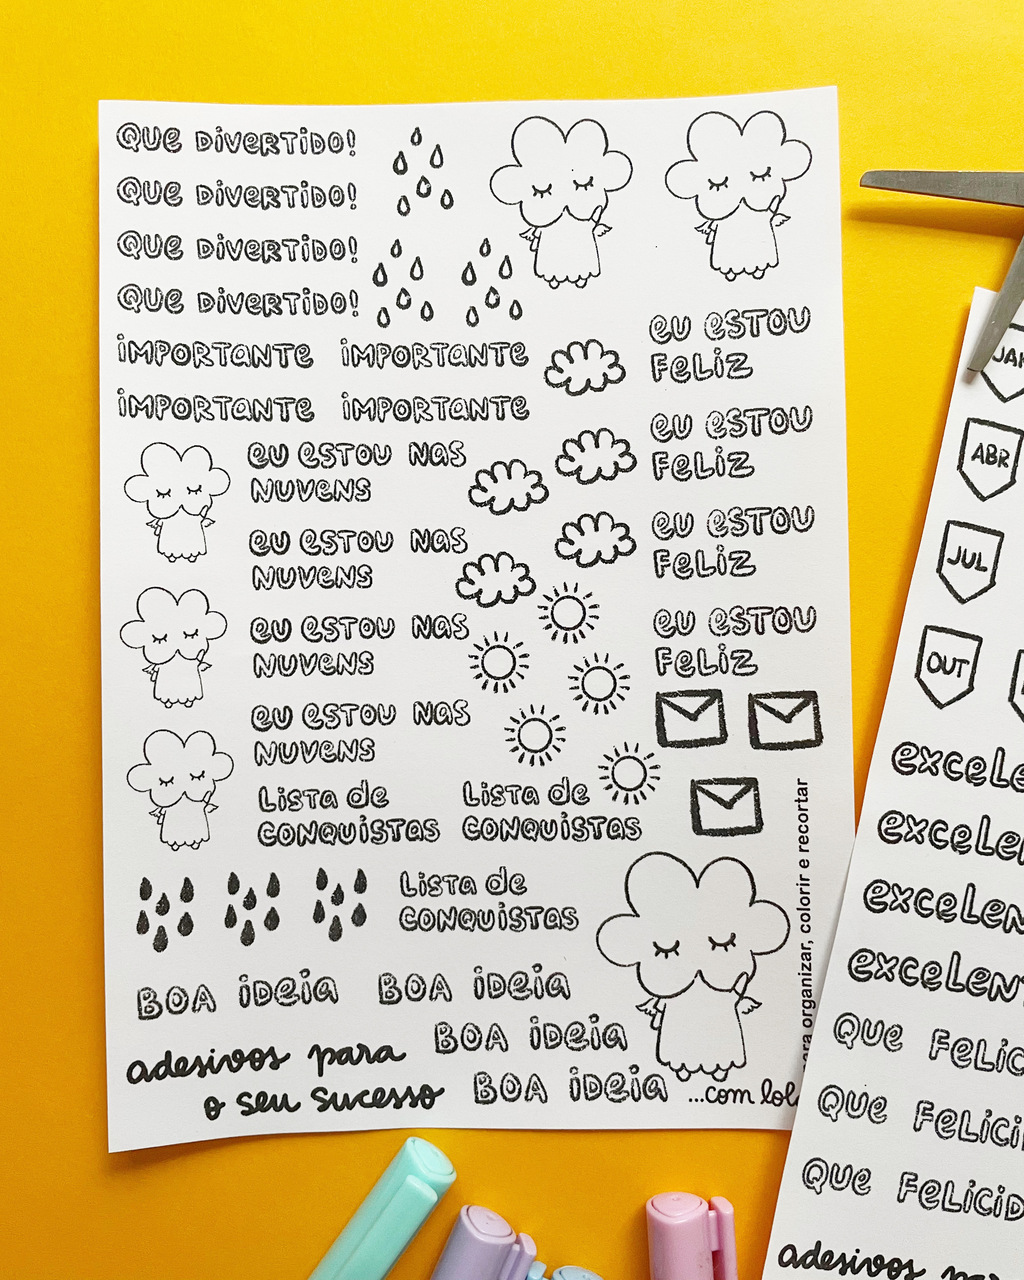 QUE DIVERTIDO!
QUE DIVERTIDO!
QUE DIVERTIDO!
QUE DIVERTIDO!
IMPORTANTE IMPORTANTE
IMPORTANTE IMPORTANTE
EU ESTOU NAS
NUVENS
EU ESTOU NAS
NUVENS
EU ESTOU NAS
NUVENS
EU ESTOU NAS
NUVENS
EU ESTOU
FELIZ
EU ESTOU
FELIZ
EU ESTOU
FELIZ
EU ESTOU
FELIZ
LISTA de
CONQUISTAS
LISTA de
CONQUISTAS
LISTA de
CONQUISTAS
BOA ideia BOA ideia
BOA ideia
BOA ideia
adesivos para
o seu sucesso
...com lol
organizar, colorir e recortar
JAN
ABR
JUL
OUT
excele
excelen
excelen
excelent
QUE FELIC
QUE FELICI
QUE FELICID
adesivos